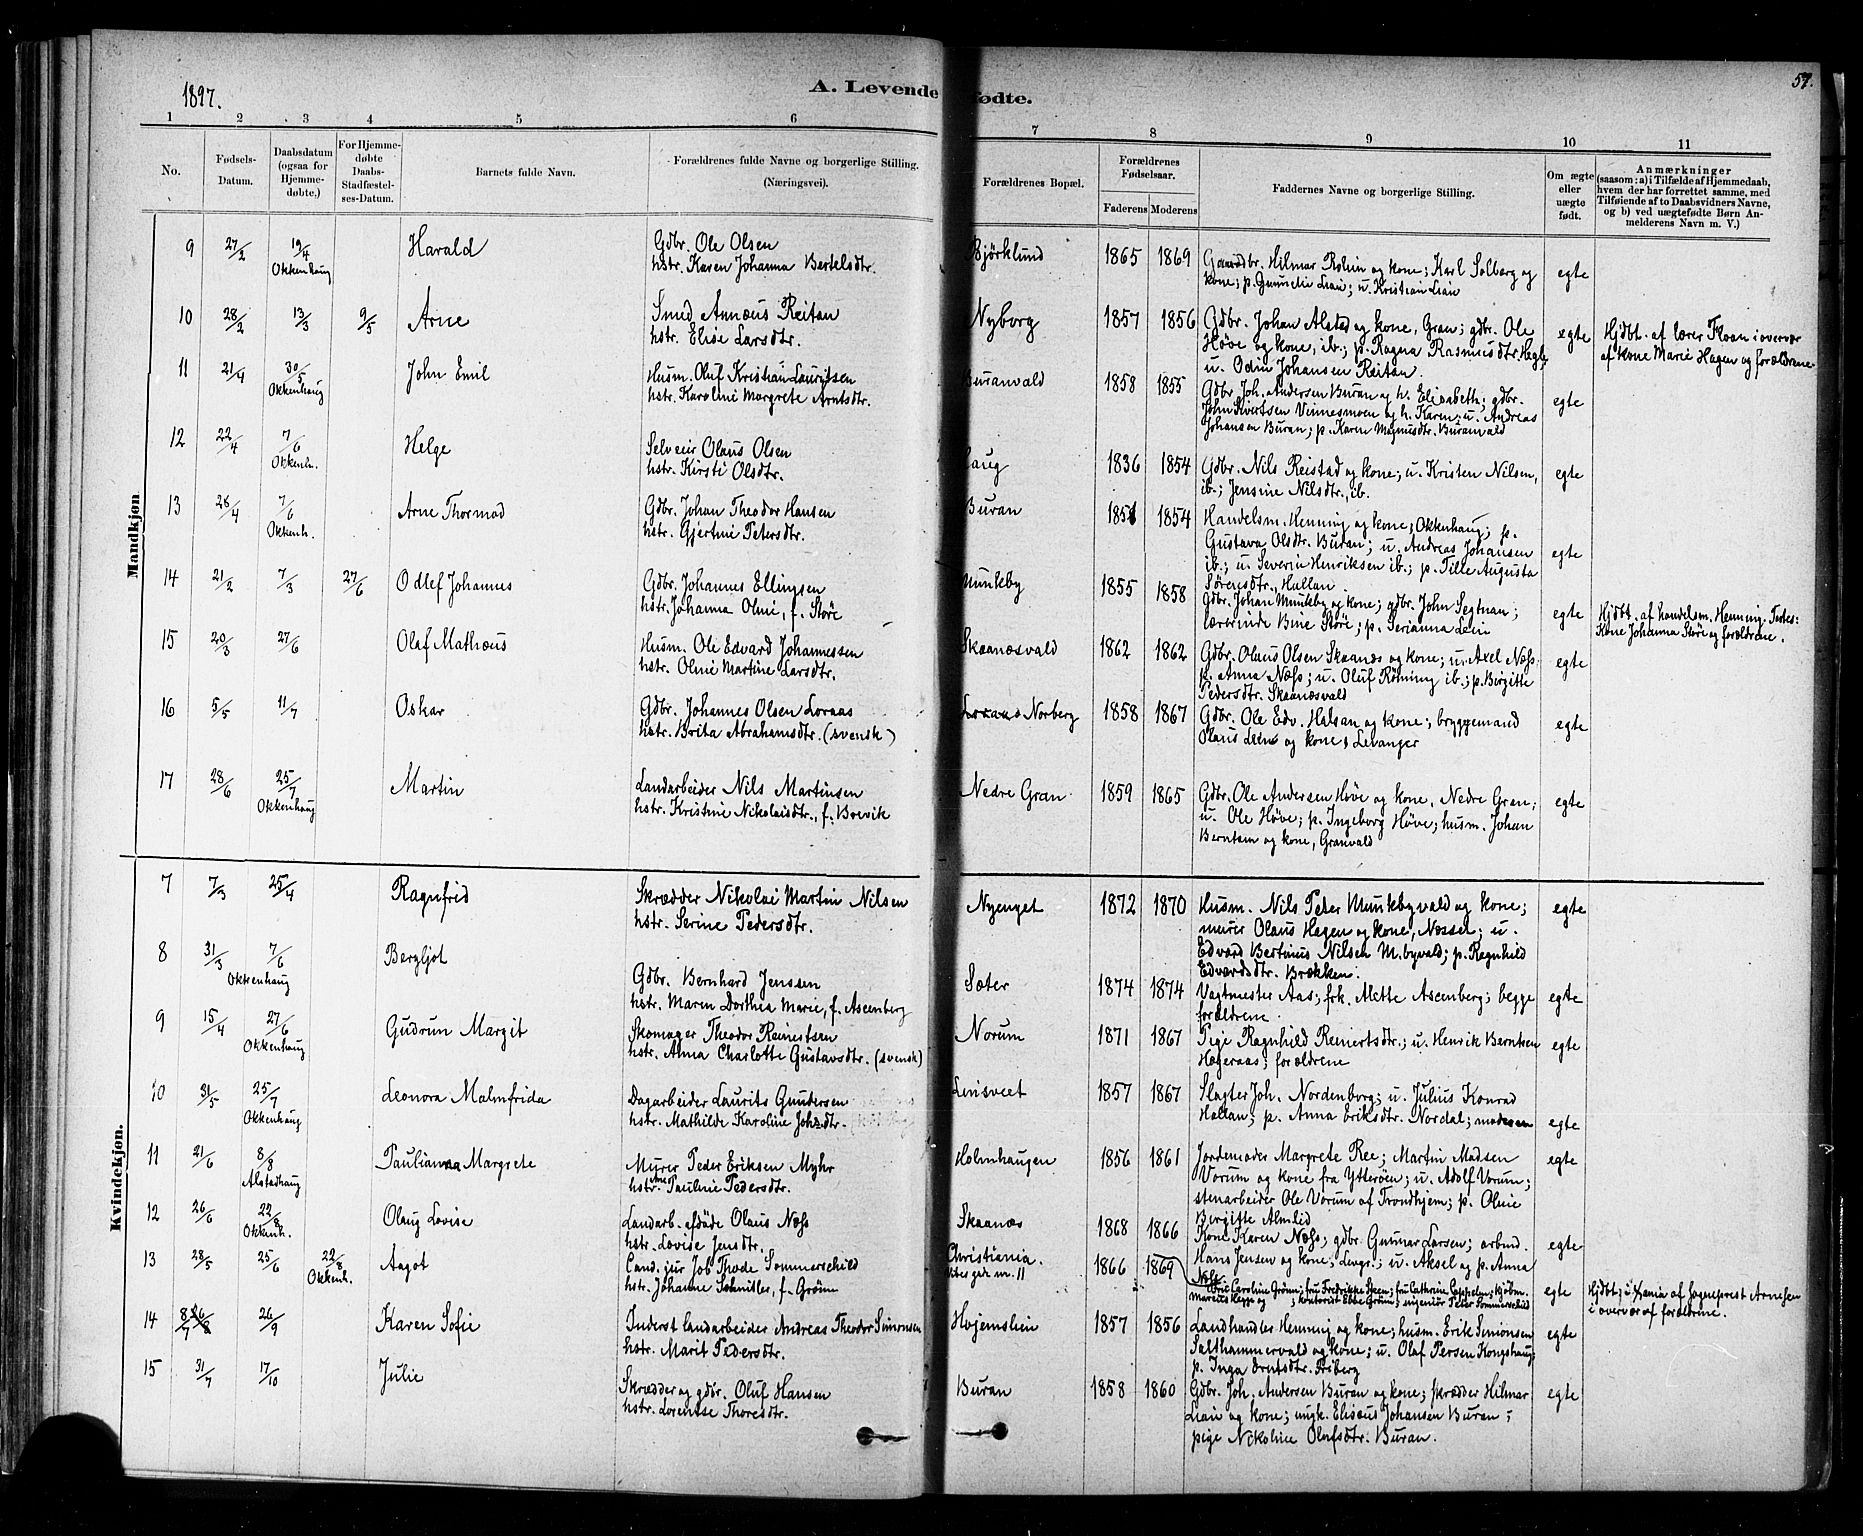 1897.
A. Levende fødte.
57.
1 2 3 4 5 6 7 8 9 10 11
No.
Fødsels-Datum.
Daabsdatum (ogsaa for Hjemme-døbte,)
For Hjemme-døbte Daabs-Stadfæstel-ses-Datum.
Barnets fulde Navn.
Forældrenes fulde Navne og borgerlige Stilling. (Næringsvei).
Forældrenes Bopæl.
Forældrenes Fødselsaar.
Faderens Moderens
Faddernes Navne og borgerlige Stilling.
Om ægte eller uægte født.
Anmærkninger
(saasom: a) i Tilfælde af Hjemmedaab,
hvem der har forrettet samme, med
Tilføiende af to Daabsvidners Navne,
og b) ved uægtefødte Børn An-
melderens Navn m. V.)
Mandkjøn.
9 27/2 19/4 Okkenhaug Harald
Gdbr. Ole Olsen
hstr. Karen Johanna Bertelsdtr.
Bjørklund 1865 1869
Gaardbr. Hilmar Rolin og kone; Karl Solberg og
kone; p. Gunnelie Lian; u. Kristian Lian
egte
10 28/2 13/3 9/5 Arne
Smed Annæus Reitan
hstr. Elise Larsdtr.
Nyborg 1857 1856
Gdbr. Johan Alstad og kone, Gran; gdbr. Ole
Høve og kone, ib.; p. Ragna Rasmusdtr. Hegle
u. Odin Johansen Reitan.
egte
Hjdbt. af lærer Floan i overvær
af kone Marie Hagen og forældrene
11 21/4 30/5 Okkenhaug John Emil
Husm. Oluf Kristian Lauritsen
hstr. Karoline Margrete Arntsdtr.
Buranvald 1858 1855
Gdbr. Joh. Andersen Buran og h. Elisabeth; gdbr.
John Sivertsen Vinnesmoen og h. Karen; u. Andreas
Johansen Buran; p. Karen Magnusdtr. Buranvald
egte
12 22/4 7/6 Okkenh. Helge
Selveier Olaus Olsen
hstr. Kirsti Olsdtr.
Haug 1836 1854
Gdbr. Nils Reistad og kone; u. Kristen Nilsen,
ib.; Jensine Nilsdtr., ib.
egte
13 26/4 7/6 Okkenh. Arne Thormod
Gdbr. Johan Theodor Hansen
hstr. Gjertine Petersdtr.
Buran 1851 1854
Handelsm. Henning og kone, Okkenhaug; p.
Gustava Olsdtr. Buran; u. Andreas Johansen
ib.; u. Severin Henriksen ib.; p. Tille Augusta
Sørensdtr. Hallan.
egte
14 21/2 7/3 27/6 Odlef Johannes
Gdbr. Johannes Ellingsen
hstr. Johanna Oline, f. Støre
Munkby 1855 1858
Gdbr. Johan Munkby og kone; gdbr. John Segtnan;
lærerinde Bine Støre; p. Serianna Lein
egte
Hjdbt. af handelsm. Henning. Testes:
Kone Johanna Støre og forældrene.
15 20/3 27/6 Olaf Mathæus
Husm. Ole Edvard Johannessen
hstr. Oline Martine Larsdtr.
Skaanæsvald 1862 1862
Gdbr. Olaus Olsen Skaanæs og kone; u. Axel Næss
p. Anna Næss; u. Oluf Røkning ib.; p. Birgitte
Pedersdtr. Skaanæsvald
egte
16 5/5 11/7 Oskar
Gdbr. Johannes Olsen Loraas
hstr. Brita Abrahamsdtr. (svensk)
Loraas Norberg 1858 1867
Gdbr. Ole Edv. Halsan og kone; bryggemand
Olaus Leen og kone, Levanger
egte
17 28/6 25/7 Okkenhaug Martin
Landarbeider Nils Martinsen
hstr. Kristine Nikolaisdtr., f. Brevik
Nedre Gran 1859 1865
Gdbr. Ole Andersen Høve og kone, Nedre Gran;
u. Ole Høve; p. Ingeborg Høve; husm. Johan
Berntsen og kone, Granvald
egte
Kvindekjøn.
7 7/3 25/4 Ragnfrid
Skrædder Nikolai Martin Nilsen
hstr. Serine Pedersdtr.
Nyenget 1872 1870
Husm. Nils Peter Munkbyvald og kone;
murer Olaus Hagen og kone, Nessel; u.
Edvard Bertinus Nilsen M.byvald; p. Ragnhild
Edvardsdtr. Brækken.
egte
8 31/3 7/6 Okkenhaug Bergljot
Gdbr. Bernhard Jenssen
hstr. Maren Dorthea Marie, f. Ascenberg
Sæter 1874 1874
Vagtmester Aas; frk. Mette Ascenberg; begge
forældrene.
egte
9 15/4 27/6 Okkenhaug Gudrun Margit
Skomager Theodor Reinertsen
hstr. Alma Charlotte Gustavsdtr. (svensk)
Norum 1871 1867
Pige Ragnhild Reinertsdtr.; u. Henrik Berntsen
Hegeraas; forældrene
egte
10 31/5 25/7 Okkenhaug Leonora Malmfrida
Dagarbeider Laurits Gundersen
hstr. Mathilde Karoline Johsdtr.
Linsveet 1857 1867
Slagter Joh. Nordenborg; u. Julius Konrad
Hallan; p. Anna Eriksdtr. Nordal; moderen
egte
11 21/6 8/8 Alstadhaug Paulianna Margrete
Myrer Peder Eriksen Myhr
hstr. Ane Pauline Pedersdtr.
Holmhaugen 1856 1861
Jordemoder Margrete Ree; Martin Madsen
Vorum og kone fra Ytterøen; u. Adolf Vorum;
stenarbeider Ole Vorum af Trondhjem; p. Oline
Bergitte Almlid
egte
12 26/6 22/8 Okkenh. Olaug Lovise
Landarb. afdøde Olaus Næss
hstr. Lovise Jensdtr.
Skaanæs 1868 1866
Kone Karen Næss; gdbr. Gunnar Larsen; arbmd.
Hans Jensen og kone, Levgr.; u. Aksel og p. Anna
Næss.
egte
13 28/5 25/6 22/8 Okkenh. Aagot
Cand. jur Job Thode Sommerschild
hstr. Johanne Schmitler, f. Grønn
Christiania. 1866 1869
Caroline Grønn; fru Fredrikke Skeen; fru Cathrine Cappelen; kjøbm.
kontorist Ebbe Grønn; ingeniør Peter Sommerschild
egte
Hjdbt. i Xania af sogneprest Arnesen
i overvær af forældrene.
14 8/7 26/8 26/9 Karen Sofie
Inderst landarbeider Andreas Theodor Simonsen
hstr. Marit Pedersdtr.
Hojemslien 1857 1856
Landhandler Henning og kone; husm. Erik Simonsen
Salthammervald og kone; u. Olaf Persen Kongshaug
p. Inga Arntsdtr. Friberg
egte
15 31/7 17/10 Julie
Skrædder og gdbr. Oluf Hansen
hstr. Lorentse Thoresdtr.
Buran 1858 1860
Gdbr. Joh. Andersen Buran og kone; skrædder Hilmar
Lian og kone; ungk. Elisæus Johansen Buran;
pige Nikoline Olafsdtr. Buran.
egte